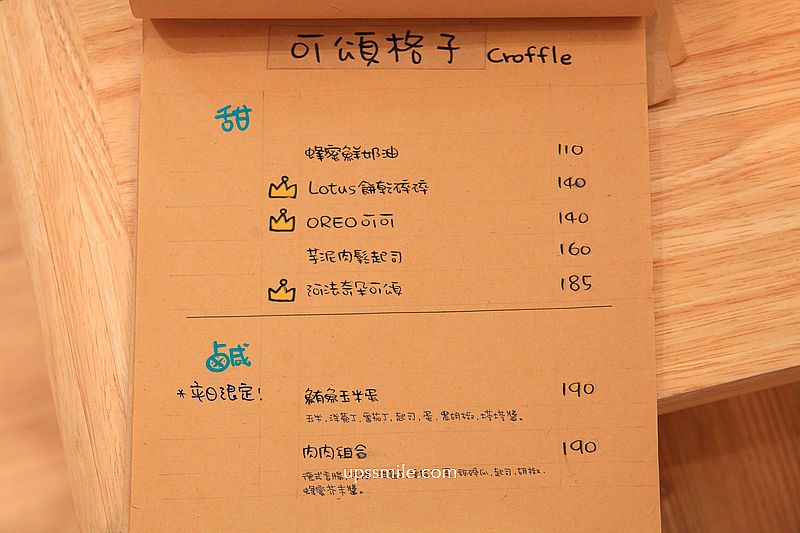 可頌格子 Croffle
甜
蜂蜜鮮奶油 110
Lotus餅乾碎碎 140
OREO可可 140
芋泥肉鬆起司 160
阿法奇朵可頌 185
鹹
*平日限定! 鮪魚玉米蛋 190
玉米、洋蔥丁、番茄丁、起司、蛋、黑胡椒、塔塔醬。
肉肉組合 190
德式香腸、酸黃瓜、起司、胡椒、
upssmile.com
蜂蜜芥末醬。